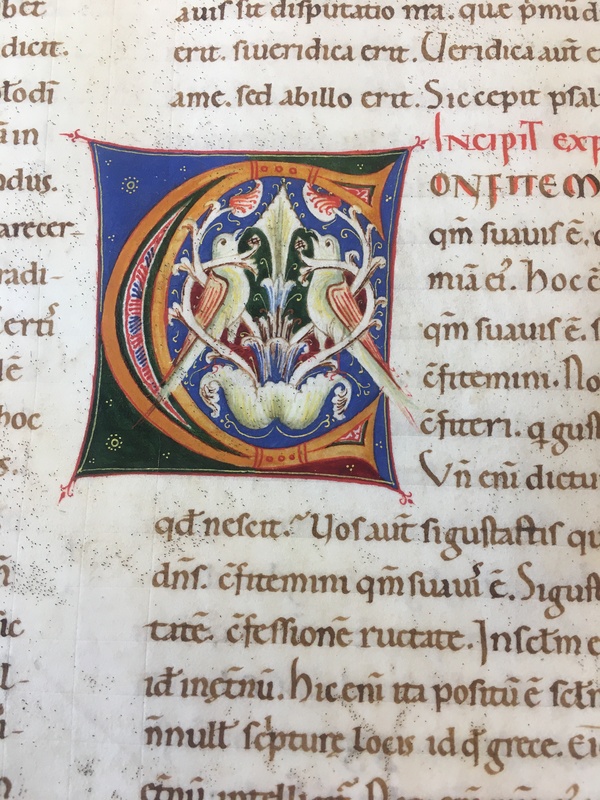 bet
dicit.
in
ndus.
arecer-
radi-
hoc
auis sit disputatio mra. que pmũ d
erit. si ueridica erit. Ueridica aut̄ e
ame. sed ab illo erit. Sic cepit psal
Incipit exp
CONFITEM
qm̄ suauis ē. c
mia ei᷒. hoc ē
qm̄ suauis ē. s
c̄fitemini. No
c̄fiteri. q gust
Vn̄ eni dictu
qd̄ nescit. Uos aut̄ si gustastis qu
dn̄s. c̄fitemini qm̄ suauis ē. Si gust
tate. c̄fessionē ructate. In sclm e
id in ęt̄nū. hic eni ita positū ē scl̄m
n̄null᷒ sc̄pturę locis id qd̄ grece. Ei